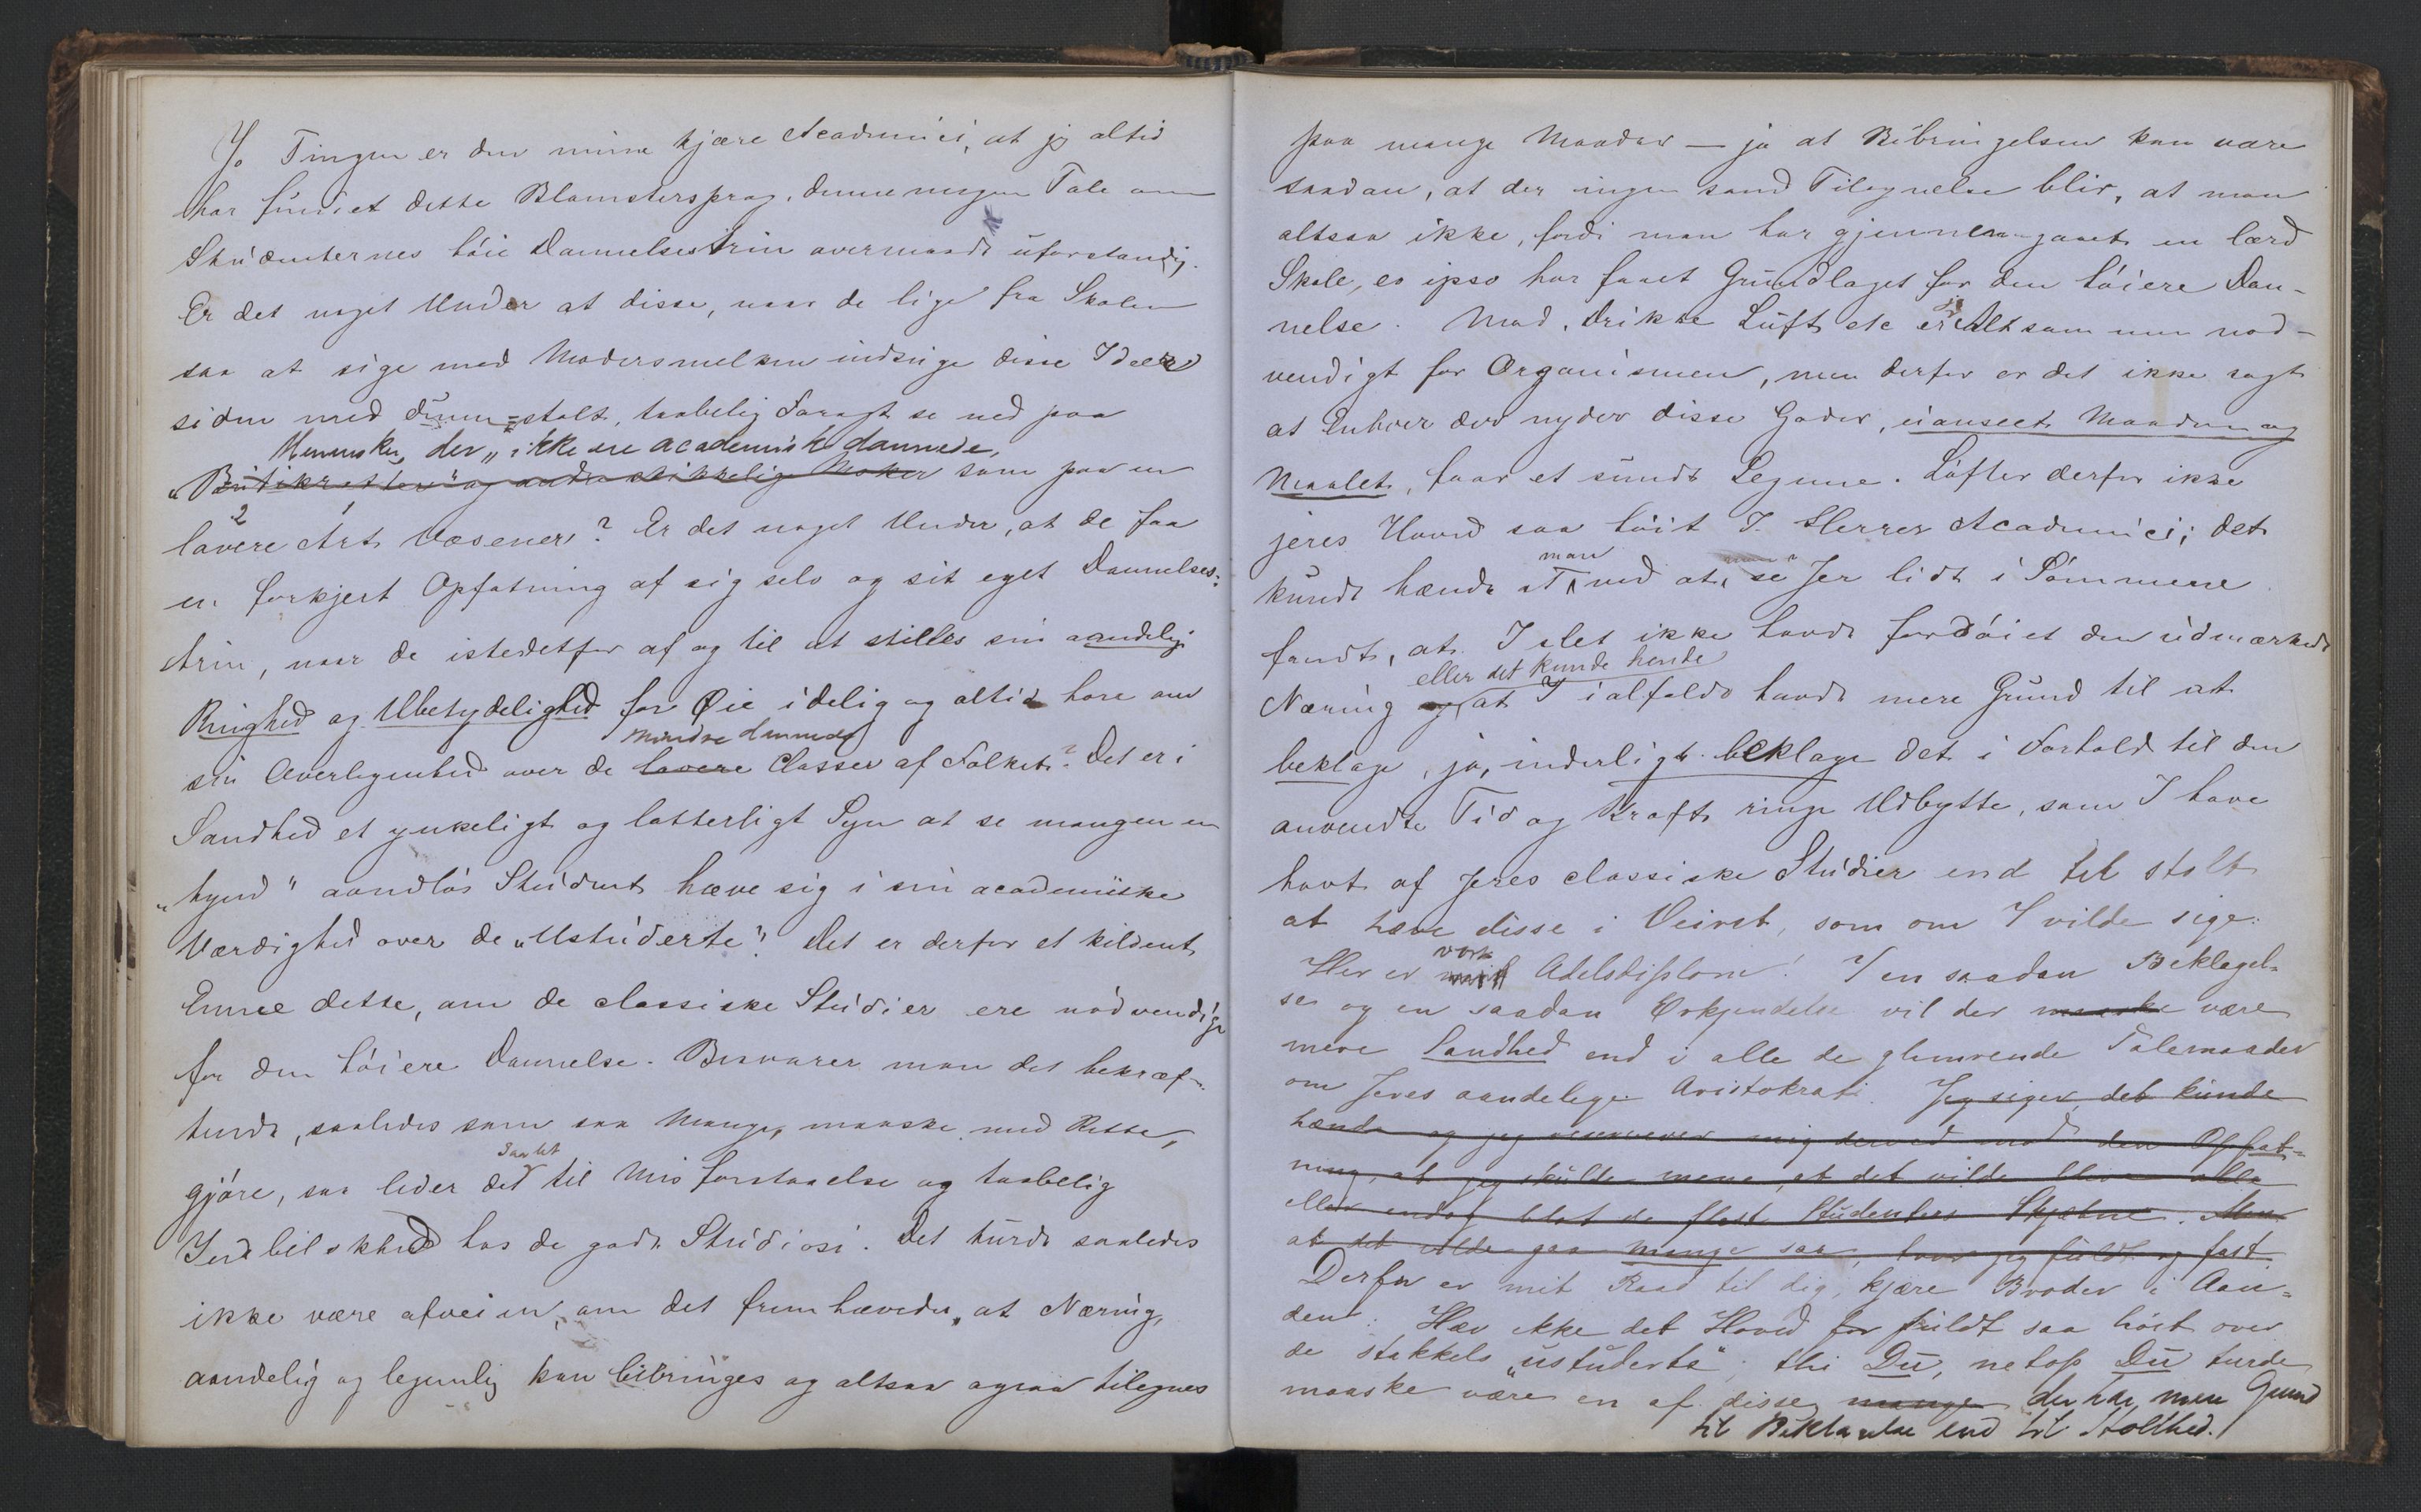 Jo Tingen er den mine kjære Academici, at jeg altid
har fundet dette Blomstersprog, denne megen Tale om
Studenternes høie Dannelsestrin overmaade uforstandig.
Er det noget Under at disse, naar de lige fra Skolen
saa at sige med Modersmelken indsuge disse Ideer
siden med dum-stolt, taabelig Foragt se ned paa
Mennesker, der „ikke ere academisk dannede,
„Butikrotter" og andre skikkelige som paa en
lavere Art Væsener? Er det noget Under, at de faa
en forkjert Opfatning af sig selv og sit eget Dannelses-
trin, naar de istedetfor af og til at stilles sin aandelige
Ringhed og Ubetydelighed for Øie idelig og altid høre om
mindre dannede
sin Overlegenhed over de lavere Classer af Folket? Det er i
Sandhed et ynkeligt og latterligt Syn at se mangen en
„hynd" aandløs Student hæve sig i sin academiske
Værdighed over de „Ustuderte". Det er derfor et kildent
Emne dette, om de classiske Studier ere nødvendige
for den høiere Dannelse. Besvarer man det bekræf-
tende, saaledes som saa Mange, maaske med Rette,
saa let
gjøre, saa leder det til Misforstaaelse og taabelig
Indbilskhed hos de gode Studiosi. Det turde saaledes
ikke være afveien, om det fremhævedes, at Næring,
aandelig og legemlig kan bibringes og altsaa ogsaa tilegnes
paa mange Maader — ja at Bibringelsen kan være
saadan, at der ingen sand Tilegnelse blir, at man
altsaa ikke, fordi man har gjennemgaaet en lærd
Skole, eo ipso har faaet Grundlaget for den høiere Dan-
nelse. Mad, Drikke Luft etc er jo Altsammen nød-
vendigt for Organismen, men derfor er det ikke sagt
at Enhver der nyder disse Goder, uanseet Maaden og
Maalet, faar et sundt Legeme. Løfter derfor ikke
jeres Hoved saa høit I Herrer Academici; det
man
kunde hænde at ved at se Jer lidt i Sømmene
fandt, at I slet ikke havde fordøiet den udmærkede
eller det kunde hænde
Næring og at I ialfald havde mere Grund til at
beklage, ja, inderligt beklage det i Forhold til den
anvendte Tid og Kraft ringe Udbytte, som I have
havt af Jeres classiske Studier end til stolt
at hæve disse i Veiret, som om I vilde sige:
vort
Her er mit Adelsdiplom! I en saadan Beklagel-
se og en saadan Erkjendelse vil der maaske være
mere Sandhed end i alle de glimrende Talemaader
om Jeres aandelige Aristokrati. Jeg siger, det kunde
hænde og jeg reserverer mig derved mod den Opfat-
ning, at jeg skulde mene, at det vilde blive alle
eller endog blot de fleste Studenters Skjæbne. Men
at det vilde gaa mange saa, tror jeg fuldt og fast.
Derfor er mit Raad til dig, kjære Broder i Aan-
den: Hæv ikke det Hoved for fuldt saa høit over
de stakkels „ustuderte"; thi Du, netop Du turde
maaske være en af disse mange der har mere Grund
til Beklagelse end til Stolthed.